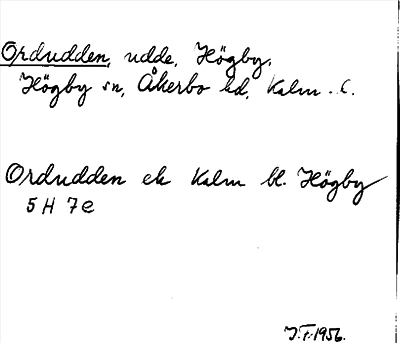 Ordudden, udde, Högby,
Högby sn, Åkerbo hd, Kalm. l.
Ordudden ek Kalm bl. Högby
5 H 7 e
J.F. 1956.